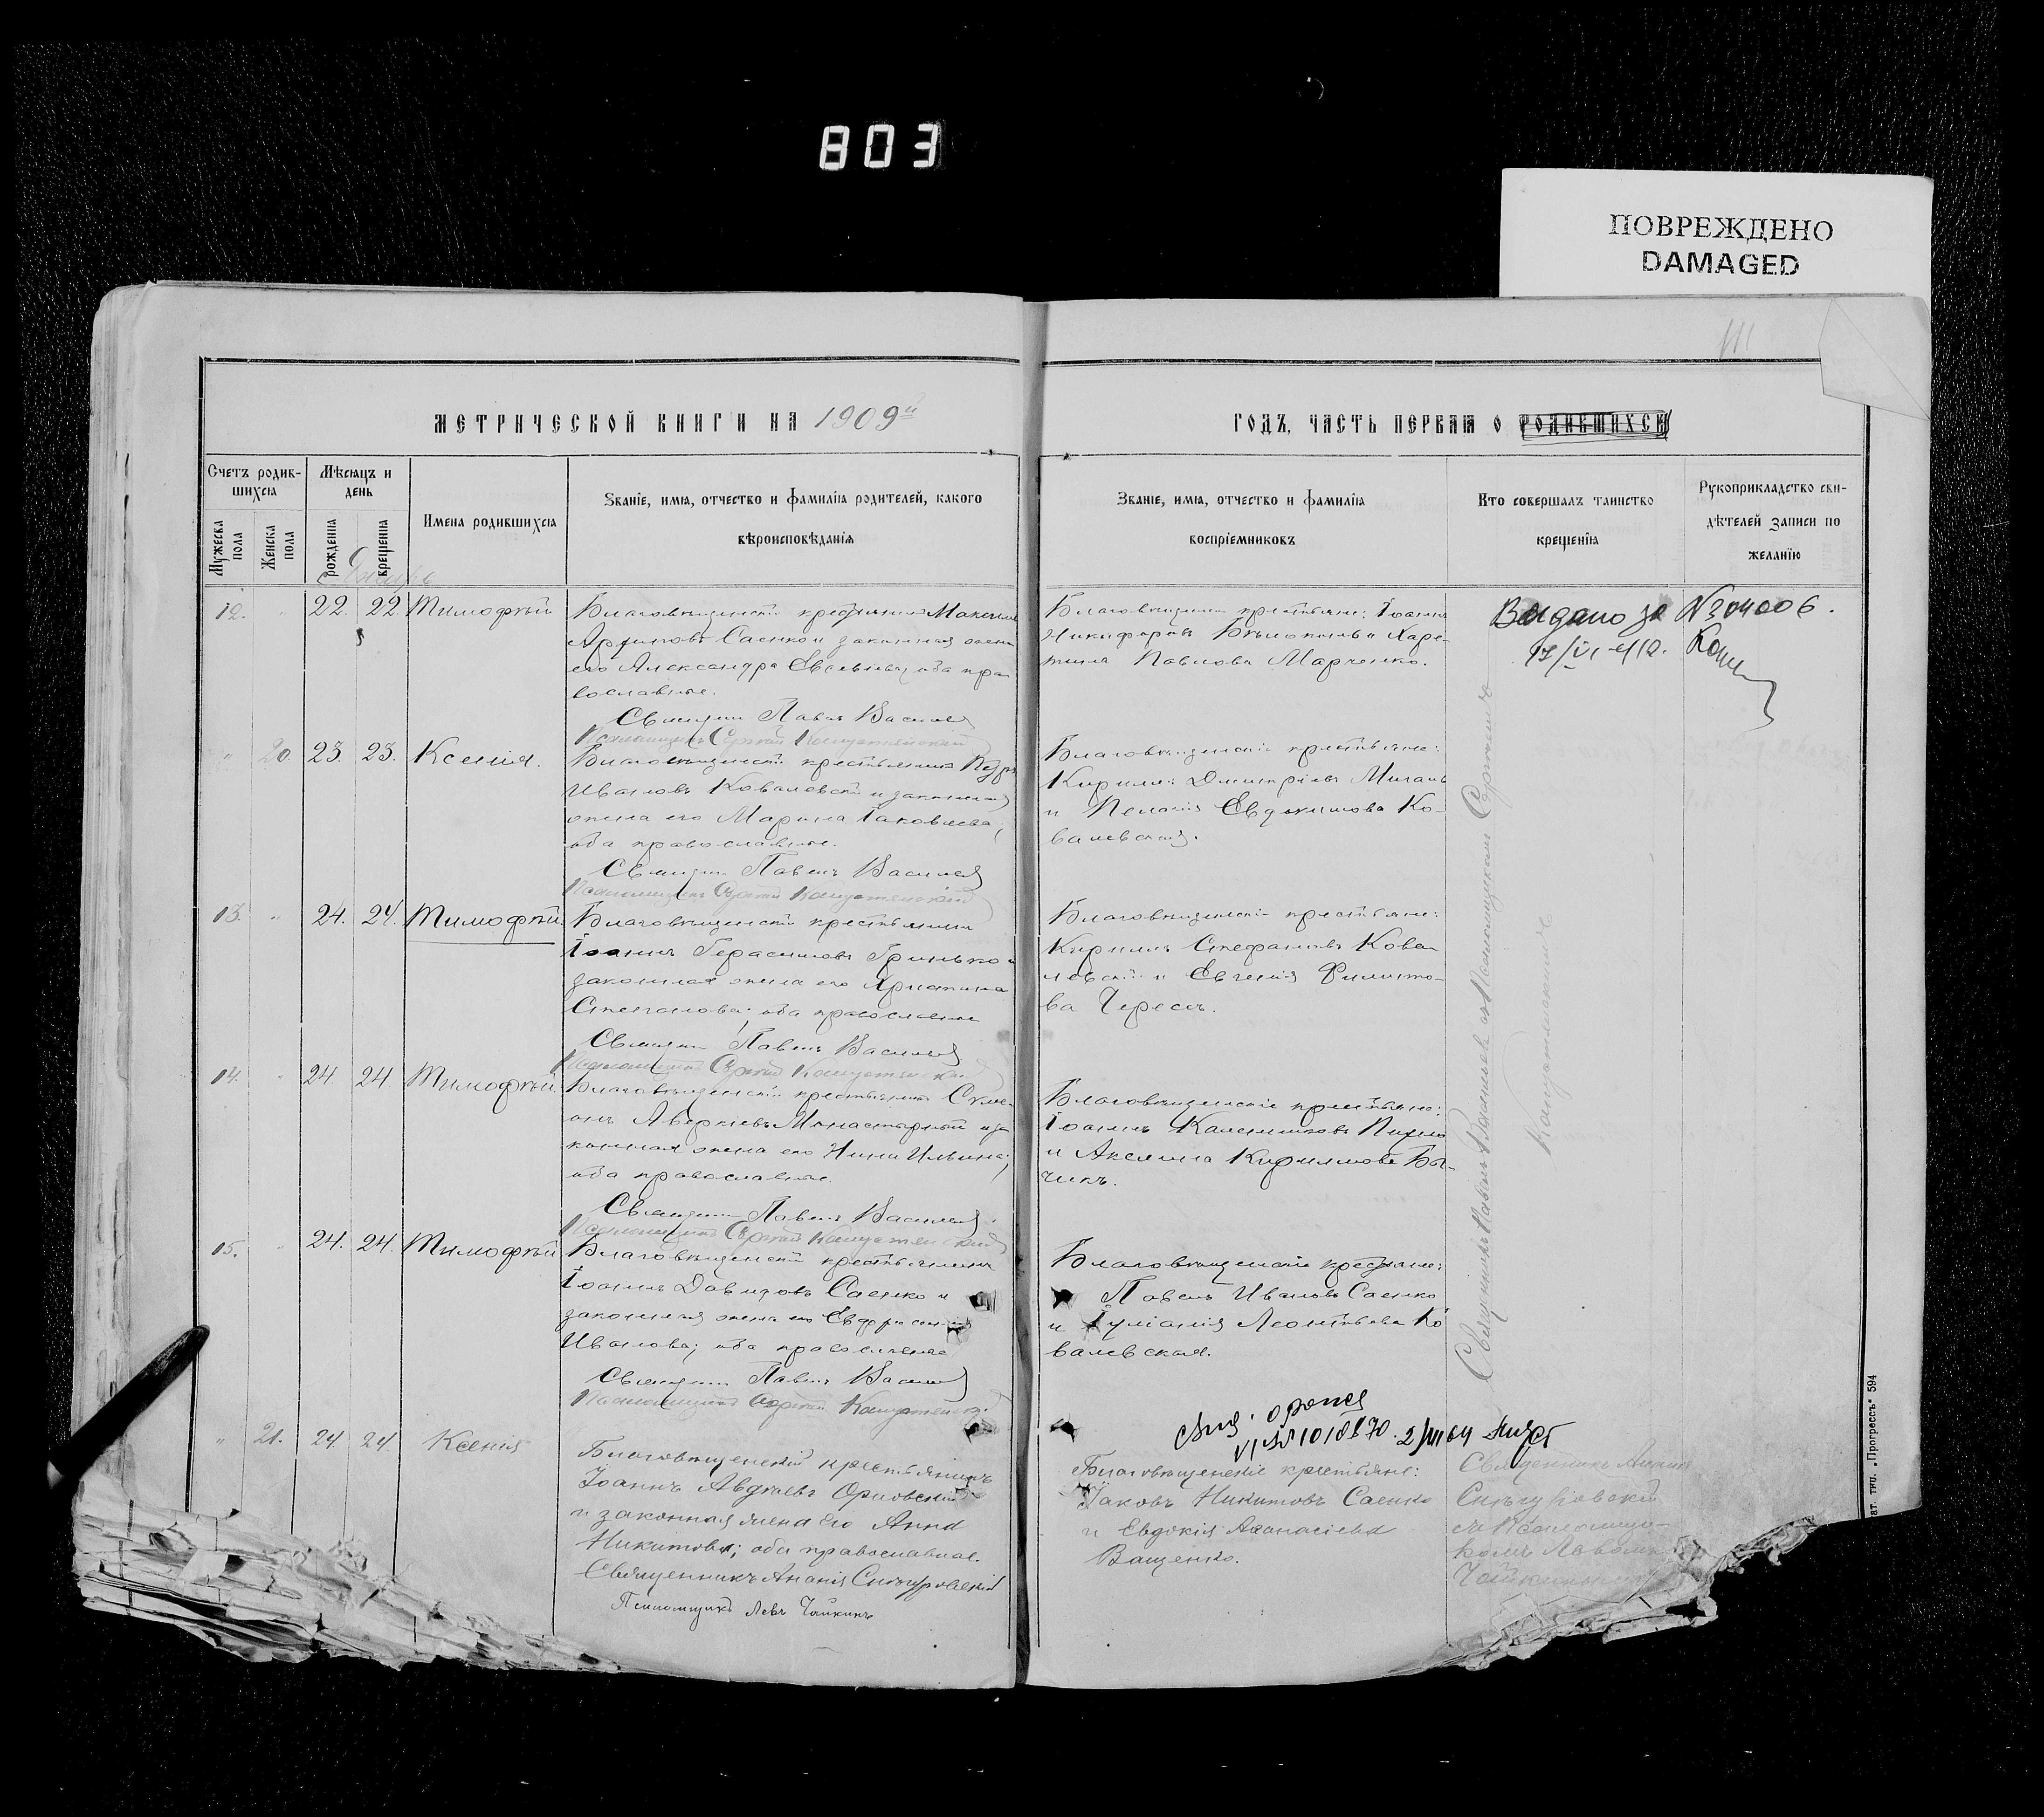 803
ПОВРЕЖДЕНО
DAMAGED
111
МЕТРИЧЕСКОЙ КНИГИ НА 1909й
ГОДЪ, ЧАСТЬ ПЕРВАЯ О РОДИВШИХСЯ
Счетъ родившихся
Мужеска пола
Женска пола
Мѣсяцъ и день
рожденія
крещенія
Имена родившихся
Званіе, имя, отчество и фамилія родителей, какого
вѣроисповѣданія
Званіе, имя, отчество и фамилія
воспріемниковъ
Кто совершалъ таинство
крещенія
Рукоприкладство сви-
дѣтелей записи по
желанію
12. " 22. 22. Тимофей
Благовѣщенскій крестьянинъ
Саенко и законная жена
его Александра оба пра
вославные.
Священникъ Павелъ Васильев
Псаломщикъ Сергѣй
Благовѣщенскіе крестьяне: Іоаннъ
Никифоровъ и Хари-
тина Павлова Марченко.
Выдано за №304006.
" 20. 23. 23. Ксенія.
Благовѣщенскій крестьянинъ Петръ
Ивановъ Ковалевскій и законная
жена его Марина Іаковлева,
оба православные.
Священникъ Павелъ Васильев
Псаломщикъ Сергѣй
Благовѣщенскіе крестьяне:
Кириллъ Димитріевъ
и Пелагія Евдокимова Ко-
валевская.
13. " 24. 24. Тимофей.
Благовѣщенскій крестьянинъ
Іоаннъ Герасимовъ Гринько и
законная жена его Христина
Степанова; оба православные
Священникъ Павелъ Васильев
Псаломщикъ Сергѣй
Благовѣщенскіе крестьяне:
Кириллъ Стефановъ Кова
левскій и Евгенія Филиппо-
ва
14. " 24. 24 Тимофей.
Благовѣщенскій крестьянинъ Симе-
онъ Аверкіевъ Монастырный и за
конная жена его Нина Ильина;
оба православные.
Священникъ Павелъ Васильев
Псаломщикъ Сергѣй
Благовѣщенскіе крестьяне:
Іоаннъ
и Аксинія Кириллова Бы-
чикъ.
15. " 24. 24. Тимофей
Благовѣщенскій крестьянинъ
Іоаннъ Давидовъ Саенко и
законная жена его Евфросинія
Иванова; оба православные
Священникъ Павелъ Васильев
Псаломщикъ Сергѣй
Благовѣщенскіе крестьяне:
Павелъ Ивановъ Саенко
и Іуліанія Леонтьева Ко
валевская.
Священникъ Павелъ Васильевъ съ Псаломщикомъ Сергѣемъ
" 21. 24. 24 Ксенія
Благовѣщенскій крестьянинъ
Іоаннъ Авдѣевъ Орловскій
и законная жена его Анна
Никитова; оба православные.
Священникъ Ананія Снѣгуровскій
Псаломщикъ Левъ Чайкинъ
Благовѣщенскіе крестьяне:
Іаковъ Никитовъ Саенко
и Евдокія Аѳанасіева
Ващенко.
Священникъ Ананія
Снѣгуровскій
съ Псаломщи-
комъ Львомъ
Чайкинымъ
тип. „Прогрессъ" 594